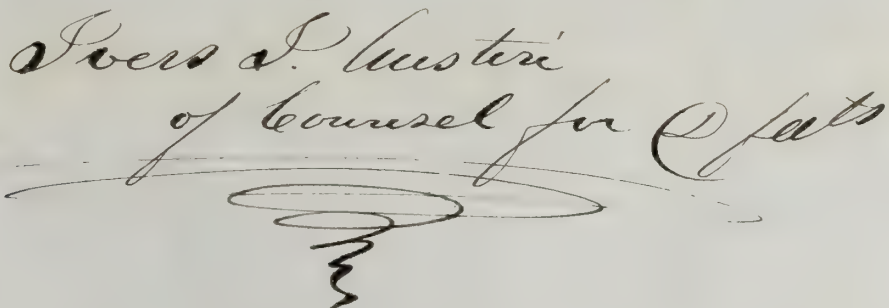 Ivers J. Austin
of Counsel for Defts